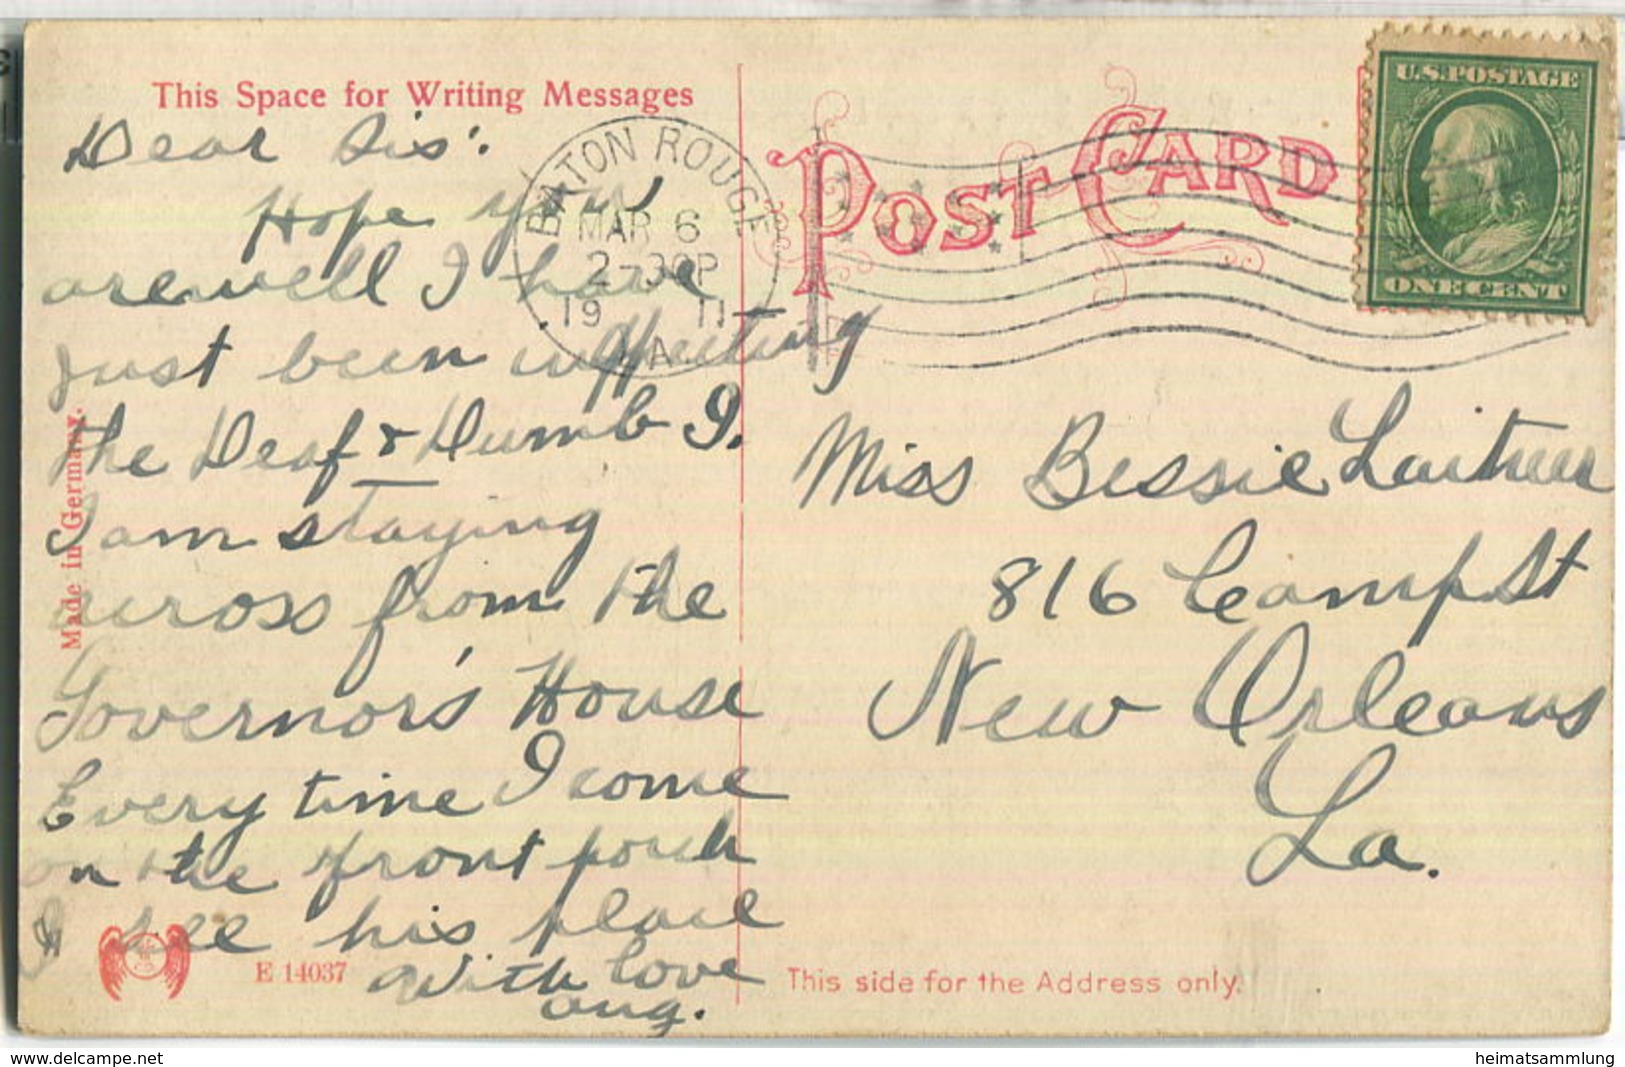 This Space for Writing Messages
Dear Sis:
Hope you
arewell I have
just been
the Deaf & Dumb I.
I am staying
across from the
Governor's House
Every time I come
on the front porch
I see his place
With love
Aug.
Made in Germany.
E 14037
BATON ROUGE
MAR 6
2-30P
19 11
LA.
POST CARD
U.S. POSTAGE
ONE CENT
Miss Bessie
816 Camp St
New Orleans
La.
This side for the Address only.
www.delcampe.net
heimatsammlung